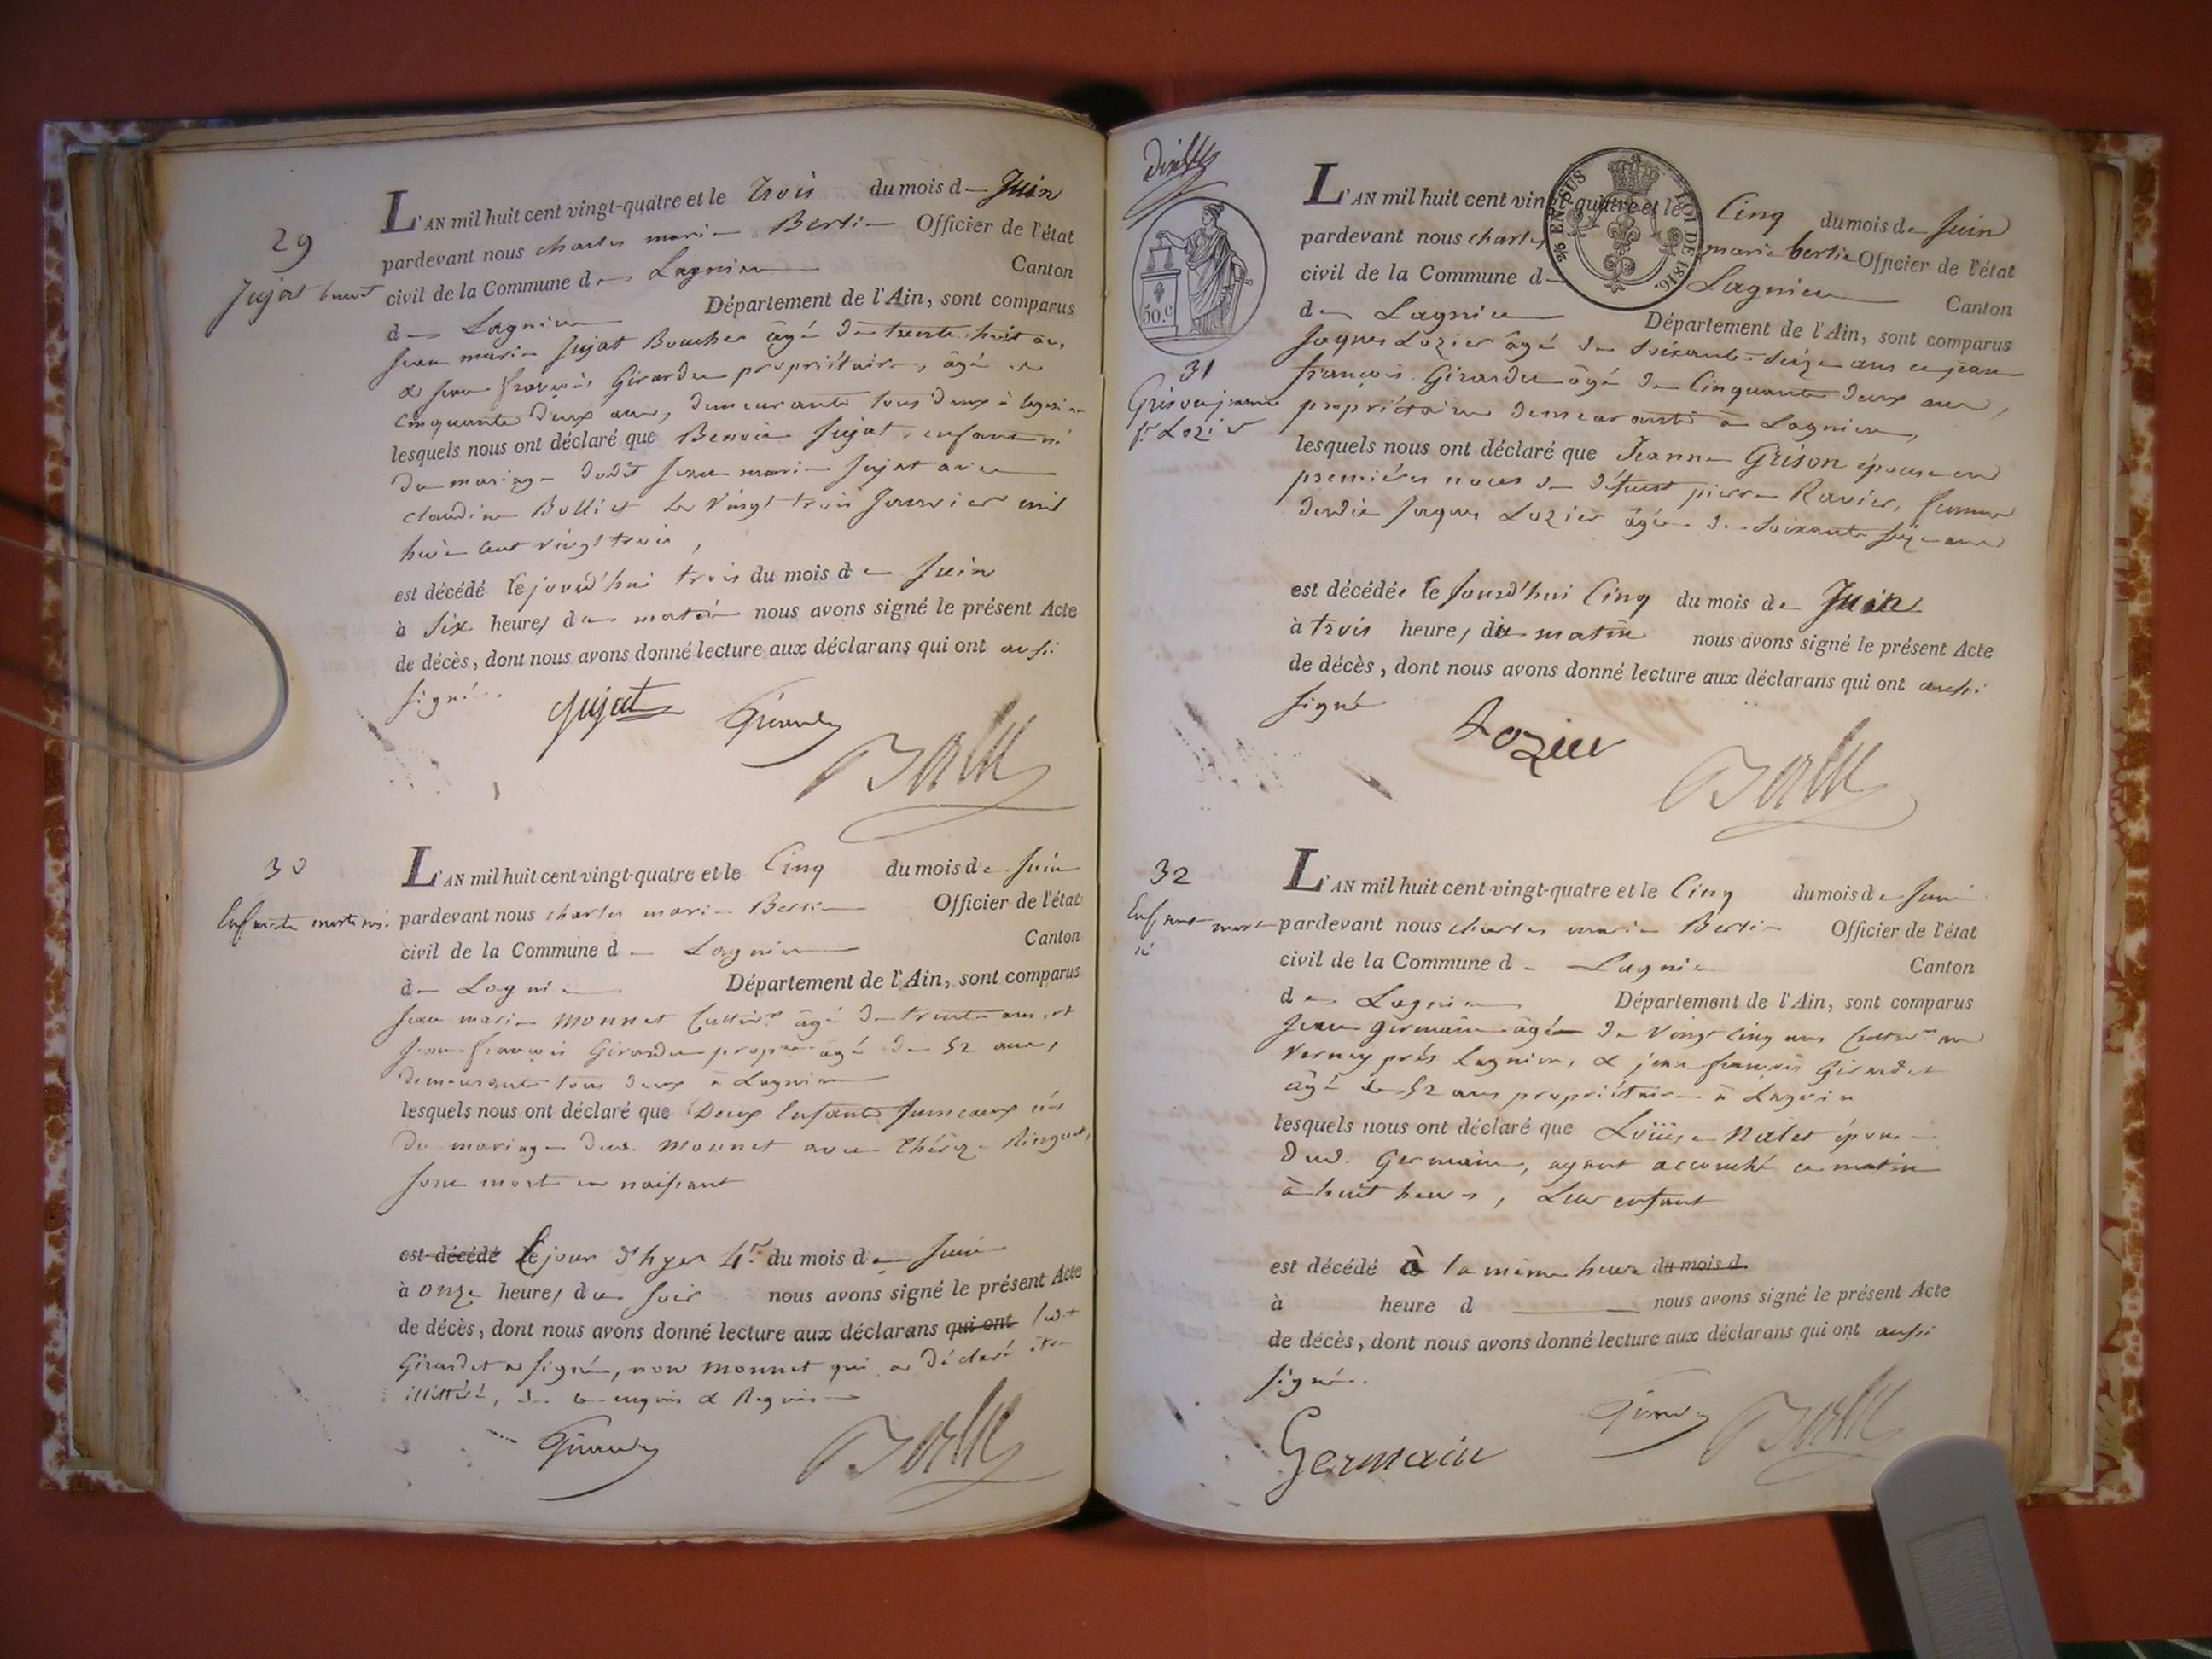 29
Jujat benoit
L'AN mil huit cent vingt-quatre et le trois du mois de Juin
pardevant nous charles marie Bertin Officier de l'état
civil de la Commune de Lagnieu Canton
de Lagnieu Département de l'Ain, sont comparus
jean marie Jujat Boucher âgé de trente huit ans
& jean françois Girardet propriétaire, âgé de
cinquante deux ans, demeurants tous deux à lagnieu
lesquels nous ont déclaré que Benoit Jujat, enfant né
du mariage dudit jean marie Jujat avec
claudine Bolliet le vingt trois Janvier mil
huit cent vingt trois,
est décédé le jourd'hui trois du mois de Juin
à six heures du matin nous avons signé le présent Acte
de décès, dont nous avons donné lecture aux déclarans qui ont aussi
signé.
Jujat Girardet
30
Enfants morts nés.
L'AN mil huit cent vingt-quatre et le Cinq du mois de Juin
pardevant nous charles marie Bertin Officier de l'état
civil de la Commune de Lagnieu Canton
de Lagnieu Département de l'Ain, sont comparus
jean marie Monnet Cultivr âgé de trente ans, et
jean françois Girardet propre âgé de 52 ans,
demeurants tous deux à Lagnieu
lesquels nous ont déclaré que Deux Enfants Jumeaux nés
du mariage dud. Monnet avec Thérèze Ringuet,
sont morts en naissant
est décédé Le jour d'hyer 4 du mois de Juin
à onze heures du soir nous avons signé le présent Acte
de décès, dont nous avons donné lecture aux déclarans qui ont led.
Girardet a signé, non Monnet qui a déclaré être
illettré, de ce enquis & Requis
Girardet
50.c
31
Grison jeanne
fe Lozier
25% EN SUS LOI DE 1816.
L'AN mil huit cent vingt-quatre et le Cinq du mois de Juin
pardevant nous charles marie bertin Officier de l'état
civil de la Commune de Lagnieu Canton
de Lagnieu Département de l'Ain, sont comparus
Jaques Lozier âgé de soixante seize ans et jean
françois Girardet âgé de Cinquante deux ans,
propriétaires demeurants à Lagnieu,
lesquels nous ont déclaré que Jeanne Grison épouse en
premières noces de défunt pierre Ravier, femme
dudit Jaques Lozier âgée de soixante seize ans
est décédée le Jourd'hui Cinq du mois de Juin
à trois heures du matin nous avons signé le présent Acte
de décès, dont nous avons donné lecture aux déclarans qui ont aussi
signé
Lozier
32
Enfant mort
né
L'AN mil huit cent vingt-quatre et le Cinq du mois de Juin
pardevant nous charles marie Bertin Officier de l'état
civil de la Commune de Lagnieu Canton
de Lagnieu Département de l'Ain, sont comparus
Jean Germain âgé de vingt cinq ans Cultivr au
Vernay près Lagnieu, & jean françois Girardet
âgé de 52 ans propriétaire à Lagnieu
lesquels nous ont déclaré que Louise Nalet épouse
dud. Germain, ayant accouché ce matin
à huit heures, Leur enfant
est décédé à la même heure du mois d
à heure d nous avons signé le présent Acte
de décès, dont nous avons donné lecture aux déclarans qui ont aussi
signé.
Germain Girardet